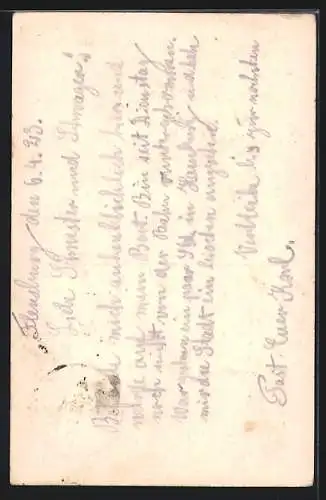 Flensburg den 6.4.23.
Liebe Schwester und Schwager!
Befinde mich augenblicklich hier und
warte auf mein Boot. Bin seit Dienstag
noch nicht von der Bahn runtergekommen.
War gestern ein paar Std. in Hamburg und habe
mir die Stadt ein bischen angesehen.
Verbleibe bis zur nächsten
Post. Euer Karl.